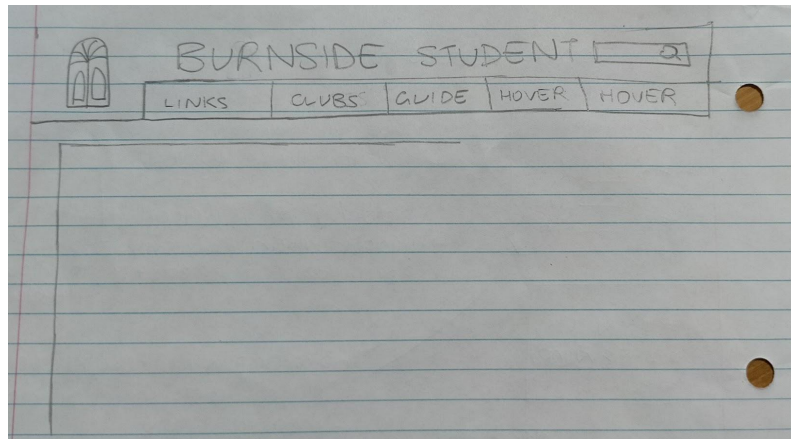 BURNSIDE STUDENT
LINKS CLUBS GUIDE HOVER HOVER